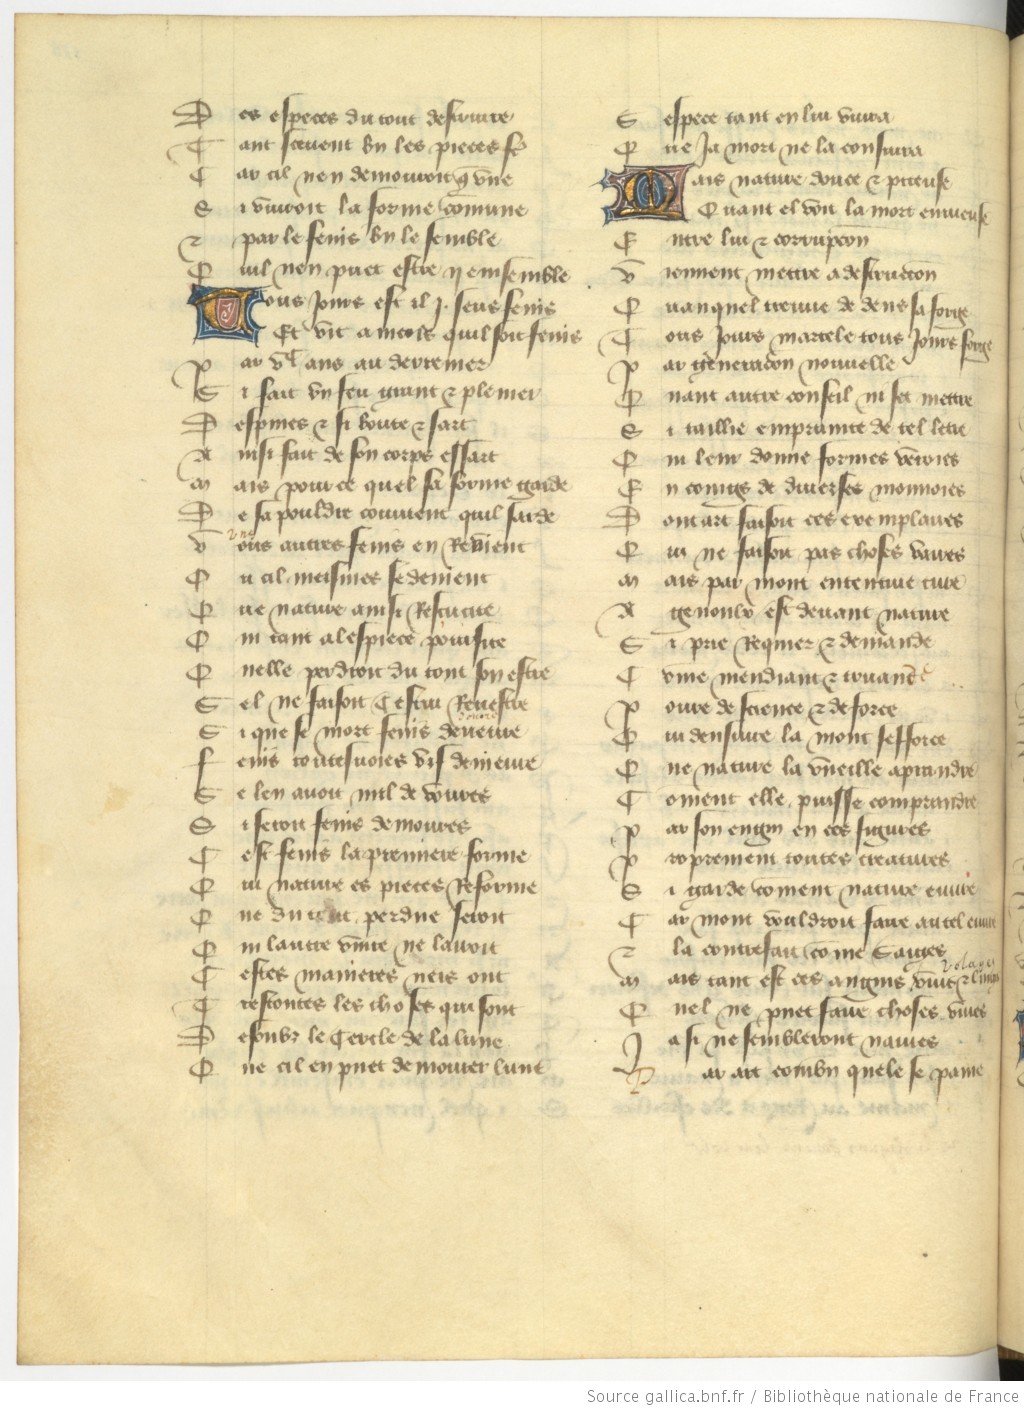 Des especes du tout destruire
Tant scevent bn les pieces se
Car cil nen demouroit q̄ vne
Si viuroit la forme cōmune
⁊ par le fenis bn le semble
Quil nen puet estre ij ensemble
Tous Jours est il j. seus fenis
Et vit aincois quil soit fenis
Par vᶜ ans au derrenier
Si fait vn feu grant ⁊ plenier
Despines ⁊ si boute ⁊ sart
Ainsi fait de son corps essart
Mais pour ce quel sa forme garde
De sa pouldre couuient quil sarde
Vons autres fenis en Reuient
vns
Ou cil meismes se deuient
Que nature ainsi Resuscite
Qui tant a lespiece prousite
Quelle perdroit du tout son estre
Sel ne faisoit Cestui Renestre
Si que se mort fenis deueure
Fenis toutesuoies vif demeure
Sel en auoit mil deuoures
Si seroit fenis demoures
Cest fenis la premiere forme
Que nature es pieces Reforme
Que du tout perdue seroit
Qui lautre viure ne lairoit
Cestes manieres neis ont
Trestoutes les choses qui sont
Desoubz le Cercle de la lune
Que cil en puet demourer lune
Sespece tant en lui viura
Que Ja mort ne la consiura
Mais nature douce ⁊ piteuse
Quant el voit la mort enuieuse
Entre lui ⁊ corrupcōn
Viennent mettre a destruction
Quanquel treuue de dens sa forge
Tous Jours martele tous Jours forge
Par generacōn nouuelle
Quant autre conseil ni set mettre
Si taillie emprainte de tel lettre
Qui leur donne formes veroies
En coings de diuerses monnoies
Dont art faisoit ces exemplaires
Qui ne faisoit pas choses vaires
Mais par mout ententiue cure
A genoulz est deuant nature
Si prie Requier ⁊ demande
Cōme mendiant ⁊ truande
Poure de science ⁊ de force
Qui densiure la mout sefforce
Que nature la vueille aprandre
Coment elle puisse comprandre
Par son engin en ces figures
Proprement toutes creatures
Si garde cōment nature euure
Car mout vouldroit faire autel euure
⁊ la contrefait cōme Singes
Mais tant est ces engins
Quel ne puet faire choses viues
Ja si ne sembleront naiues
Car art combn quele se paine